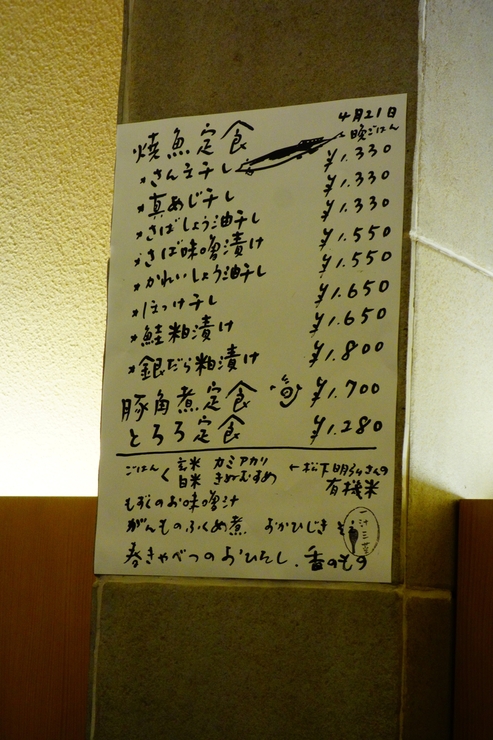 4月21日
晩ごはん
焼魚定食
*さんま干し ¥1.330
*真あじ干し ¥1.330
*さばしょう油干し ¥1.330
*さば味噌漬け ¥1.550
*かれいしょう油干し ¥1.550
*ほっけ干し ¥1.650
*鮭粕漬け ¥1.650
*銀だら粕漬け ¥1.800
豚角煮定食 ¥1.700
とろろ定食 ¥1.280
ごはん く 玄米 カミアカリ
白米 きぬむすめ
←松下明弘さんの
有機米
もずくのお味噌汁
がんものふくめ煮 おかひじき
一汁三菜
春きゃべつのおひたし、香のもの